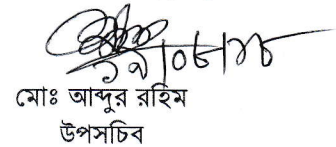 ১৯|০৮|১৮
মোঃ আব্দুর রহিম
উপসচিব